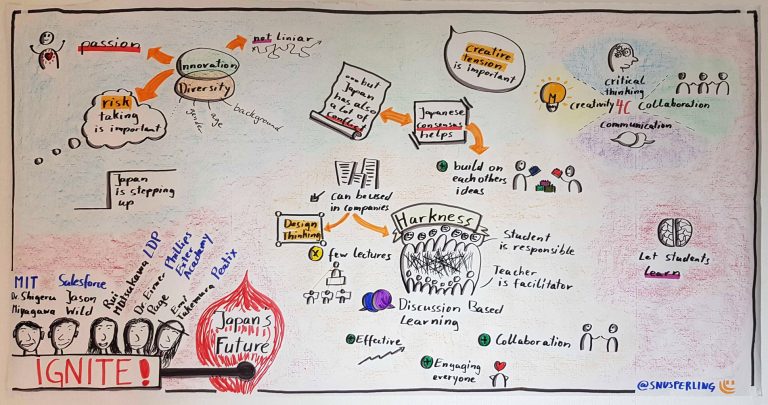 passion
not liniar
Innovation
Diversity
background
age
gender
risk
taking
is important
Japan
is stepping
up
... but
Japan
has also
a lot of
conflict
Japanese
consensus
helps
creative
tension
is important
critical
thinking
creativity 4C collaboration
communication
build on
each others
ideas
can be used
in companies
Design
Thinking
few lectures
Harkness
Student
is responsible
Teacher
is facilitator
Discussion Based
Learning
Effective
Collaboration
Engaging
everyone
Let students
Learn
MIT
Dr Shigeru
Miyagawa
Salesforce
Jason
Wild
LDP
Rui
Matsukawa
Phillips
Exter
Academy
Dr Eimer
Page
Peatix
Emi
Takemura
Japan's
Future
IGNITE!
@SNUSPERLING